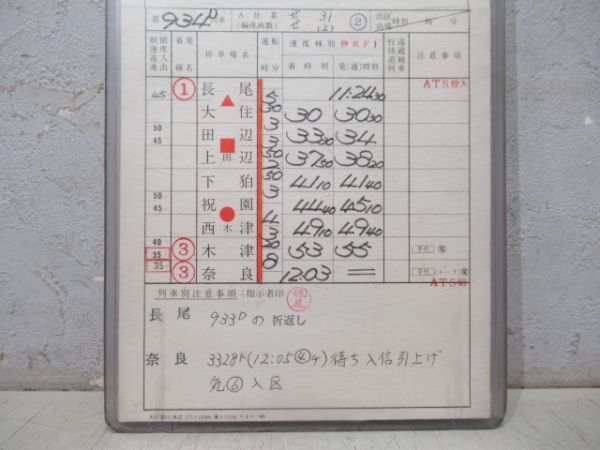 第 934D 列車 A仕業 せ 31 ② 出区 時刻 時 分
(編成両数) せ (2)
制限速度進入 制限速度進出 着線 発線名 停車場名 運転時分 速度種別 停気F1 行違待避列車 注意事項
着時刻 発(通)時刻
45 ① 長尾 11:24 30 ATS投入
5 30
大住 30 30 30
3
50 45 田辺 33 30 34
3 50
上田辺 37 50 38 20
2 50
下狛 41 10 41 40
3
50 45 祝園 44 40 45 10
4
西木津 49 10 49 40
3 20
40 35 ③ 木津 53 55
8
35 ③ 奈良 12:03 =
ATS切
列車別注意事項 (指示者印
長尾 933Dの折返し
奈良 3328K(12:05④チ)待ち入信引上げ
気⑥入区